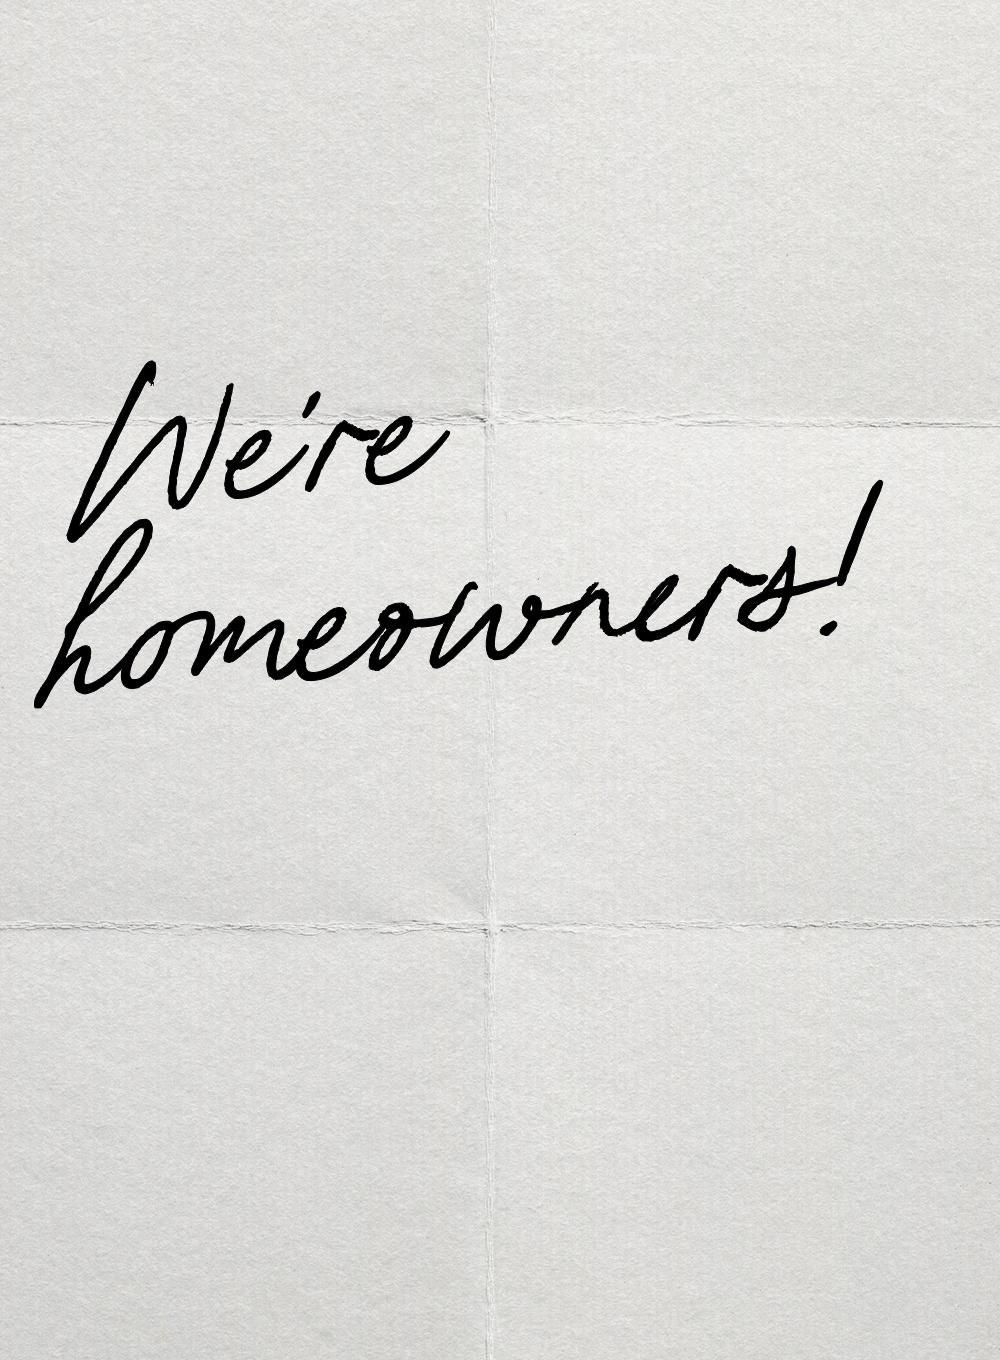 We're
homeowners!